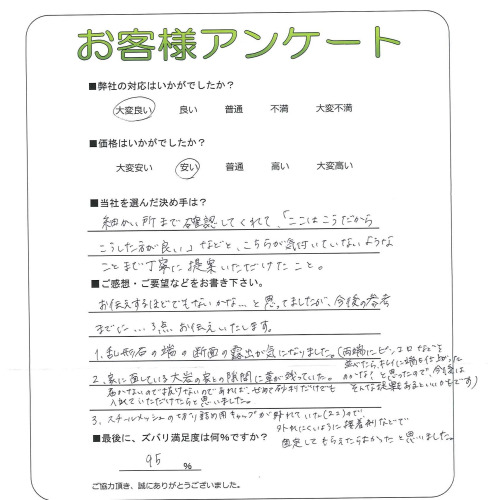 お客様アンケート
■弊社の対応はいかがでしたか？
大変良い 良い 普通 不満 大変不満
■価格はいかがでしたか？
大変安い 安い 普通 高い 大変高い
■当社を選んだ決め手は？
細かい所まで確認してくれて、「ここはこうだから
こうした方が良い」などと、こちらが気付いていないような
ことまで丁寧に提案いただけたこと。
■ご感想・ご要望などをお書き下さい。
お伝えするほどでもないかな…と思ってましたが、今後の参考
までに…3点お伝えいたします。
1. 乱形石の端の断面の露出が気になりました。(両端にピンコロなどを
並べたら、キレイに端を仕上がった
のかな？と思ったので、今後は
そんな提案もあるといいかもです)
2. 家に面している大岩の家との隙間に草が残っていた。
岩がないので抜けないのであれば、せめて砂利だけでも
入れていただけたらと思いました。
3. スチールメッシュの切り詰め用キャップが外れていた(2コ)ので、
外れにくいように接着剤などで
固定してもらえたらよかったと思いました。
■最後に、ズバリ満足度は何%ですか？
95 %
ご協力頂き、誠にありがとうございました。